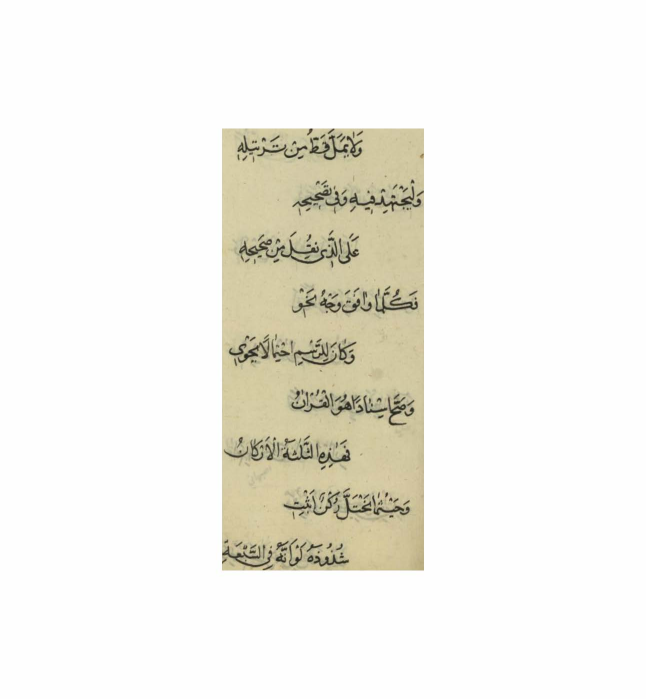 وَلَا يَمَلَّ قَطُّ مِنْ تَرْتِيلِهِ
وَلْيَجْتَهِدْ فِيهِ وَفِي تَصْحِيحِهِ
عَلَى الَّذِي نُقِلَ مِنْ صَحِيحِهِ
فَكُلَّمَا وَافَقَ وَجْهُ نَحْوِ
وَكَانَ لِلرَّسْمِ احْتِمَالًا يَحْوِي
وَصَحَّ اِسْنَادًا هُوَ الْقُرْانُ
فَهَذِهِ الثَّلٰثَةُ الْاَرْكَانُ
وَحَيْثُمَا يَخْتَلَّ رُكْنٌ اَثْبِتِ
شُذُوذَهُ لَوْ اَنَّهُ فِي السَّبْعَةِ